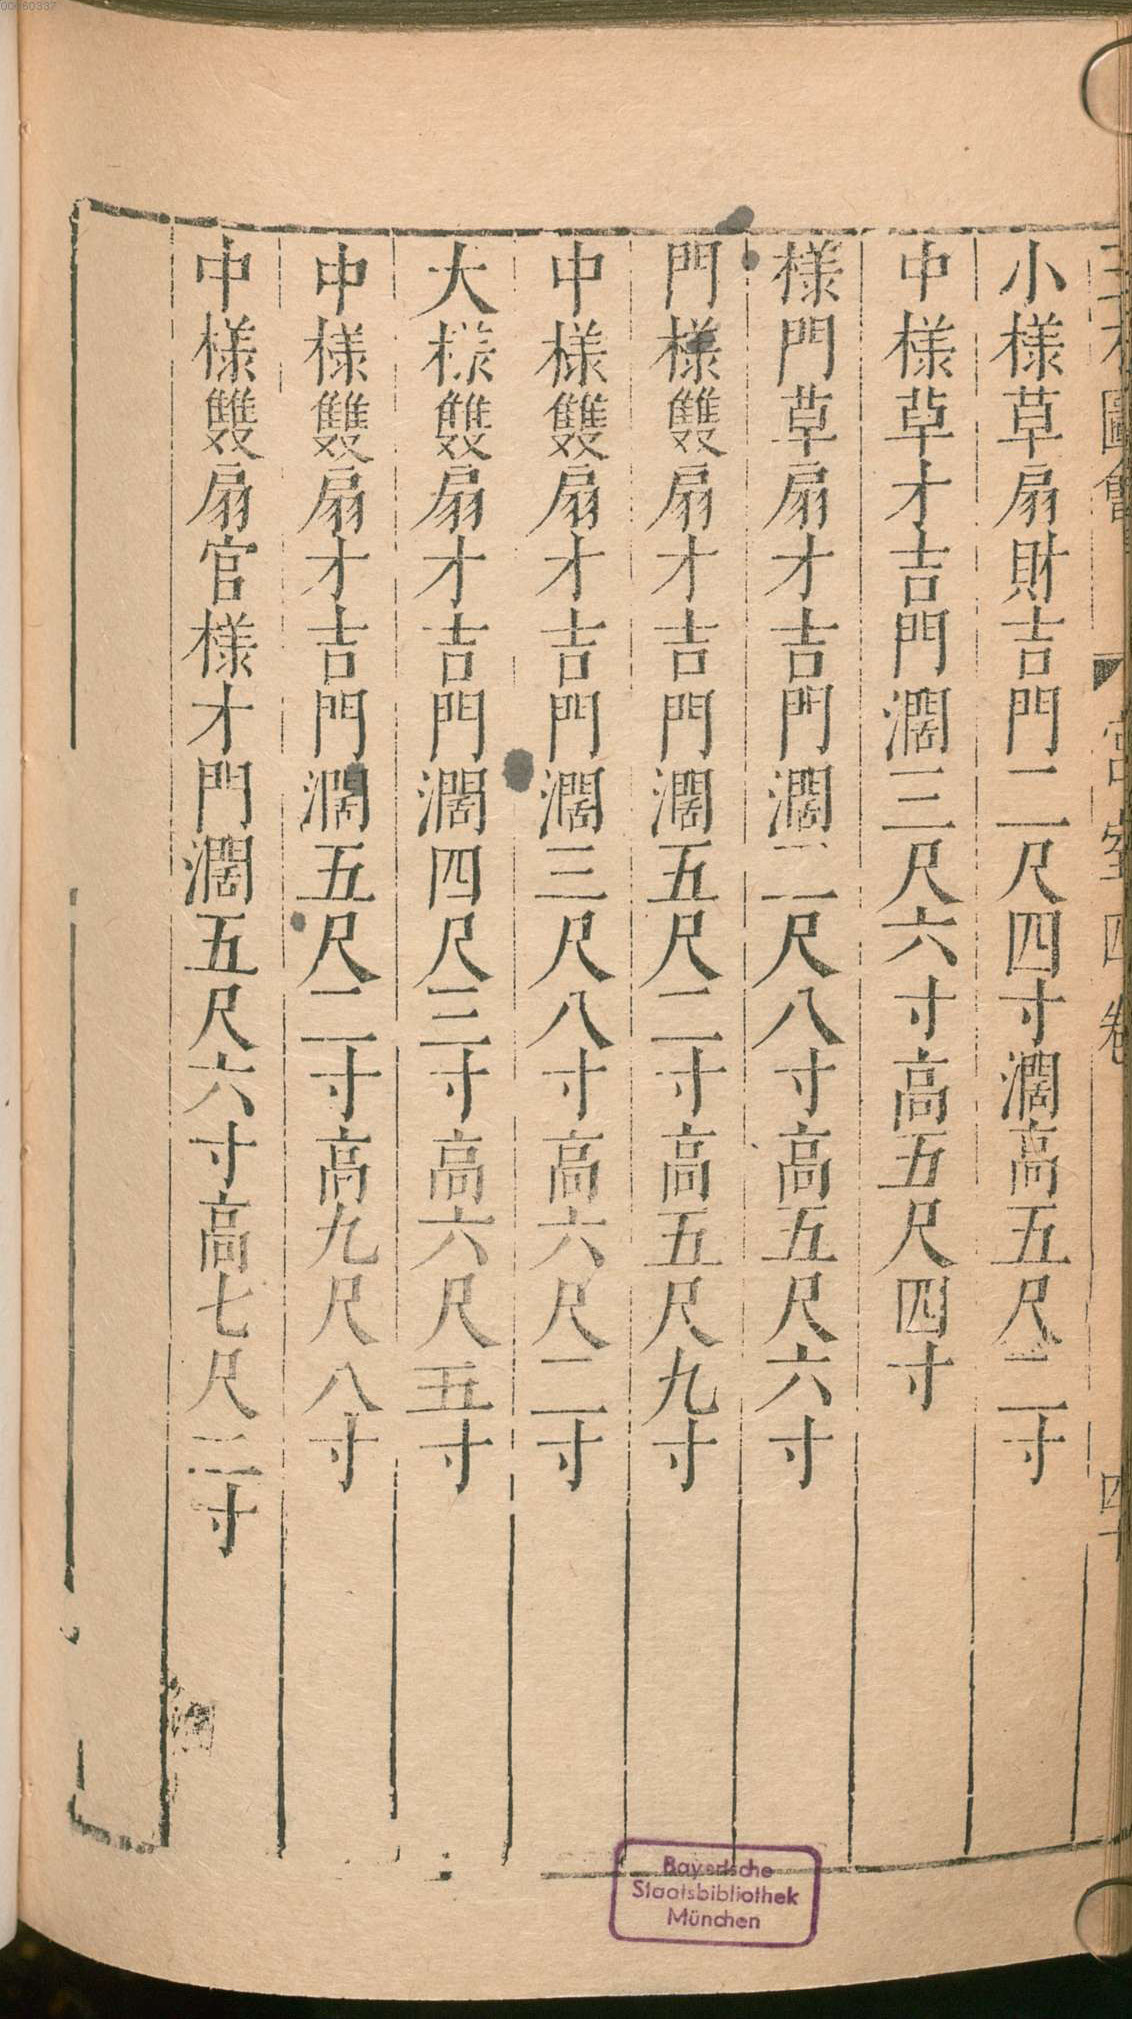 00060337
圖會 宮室四卷 四十
小樣草扇財吉門二尺四寸濶高五尺二寸
中樣草才吉門濶三尺六寸高五尺四寸
樣門草扇才吉門濶二尺八寸高五尺六寸
門樣雙扇才吉門濶五尺二寸高五尺九寸
中樣雙扇才吉門濶三尺八寸高六尺二寸
大樣雙扇才吉門濶四尺三寸高六尺五寸
中樣雙扇才吉門濶五尺二寸高九尺八寸
中樣雙扇官樣才門濶五尺六寸高七尺二寸
Bayerische
Staatsbibliothek
München